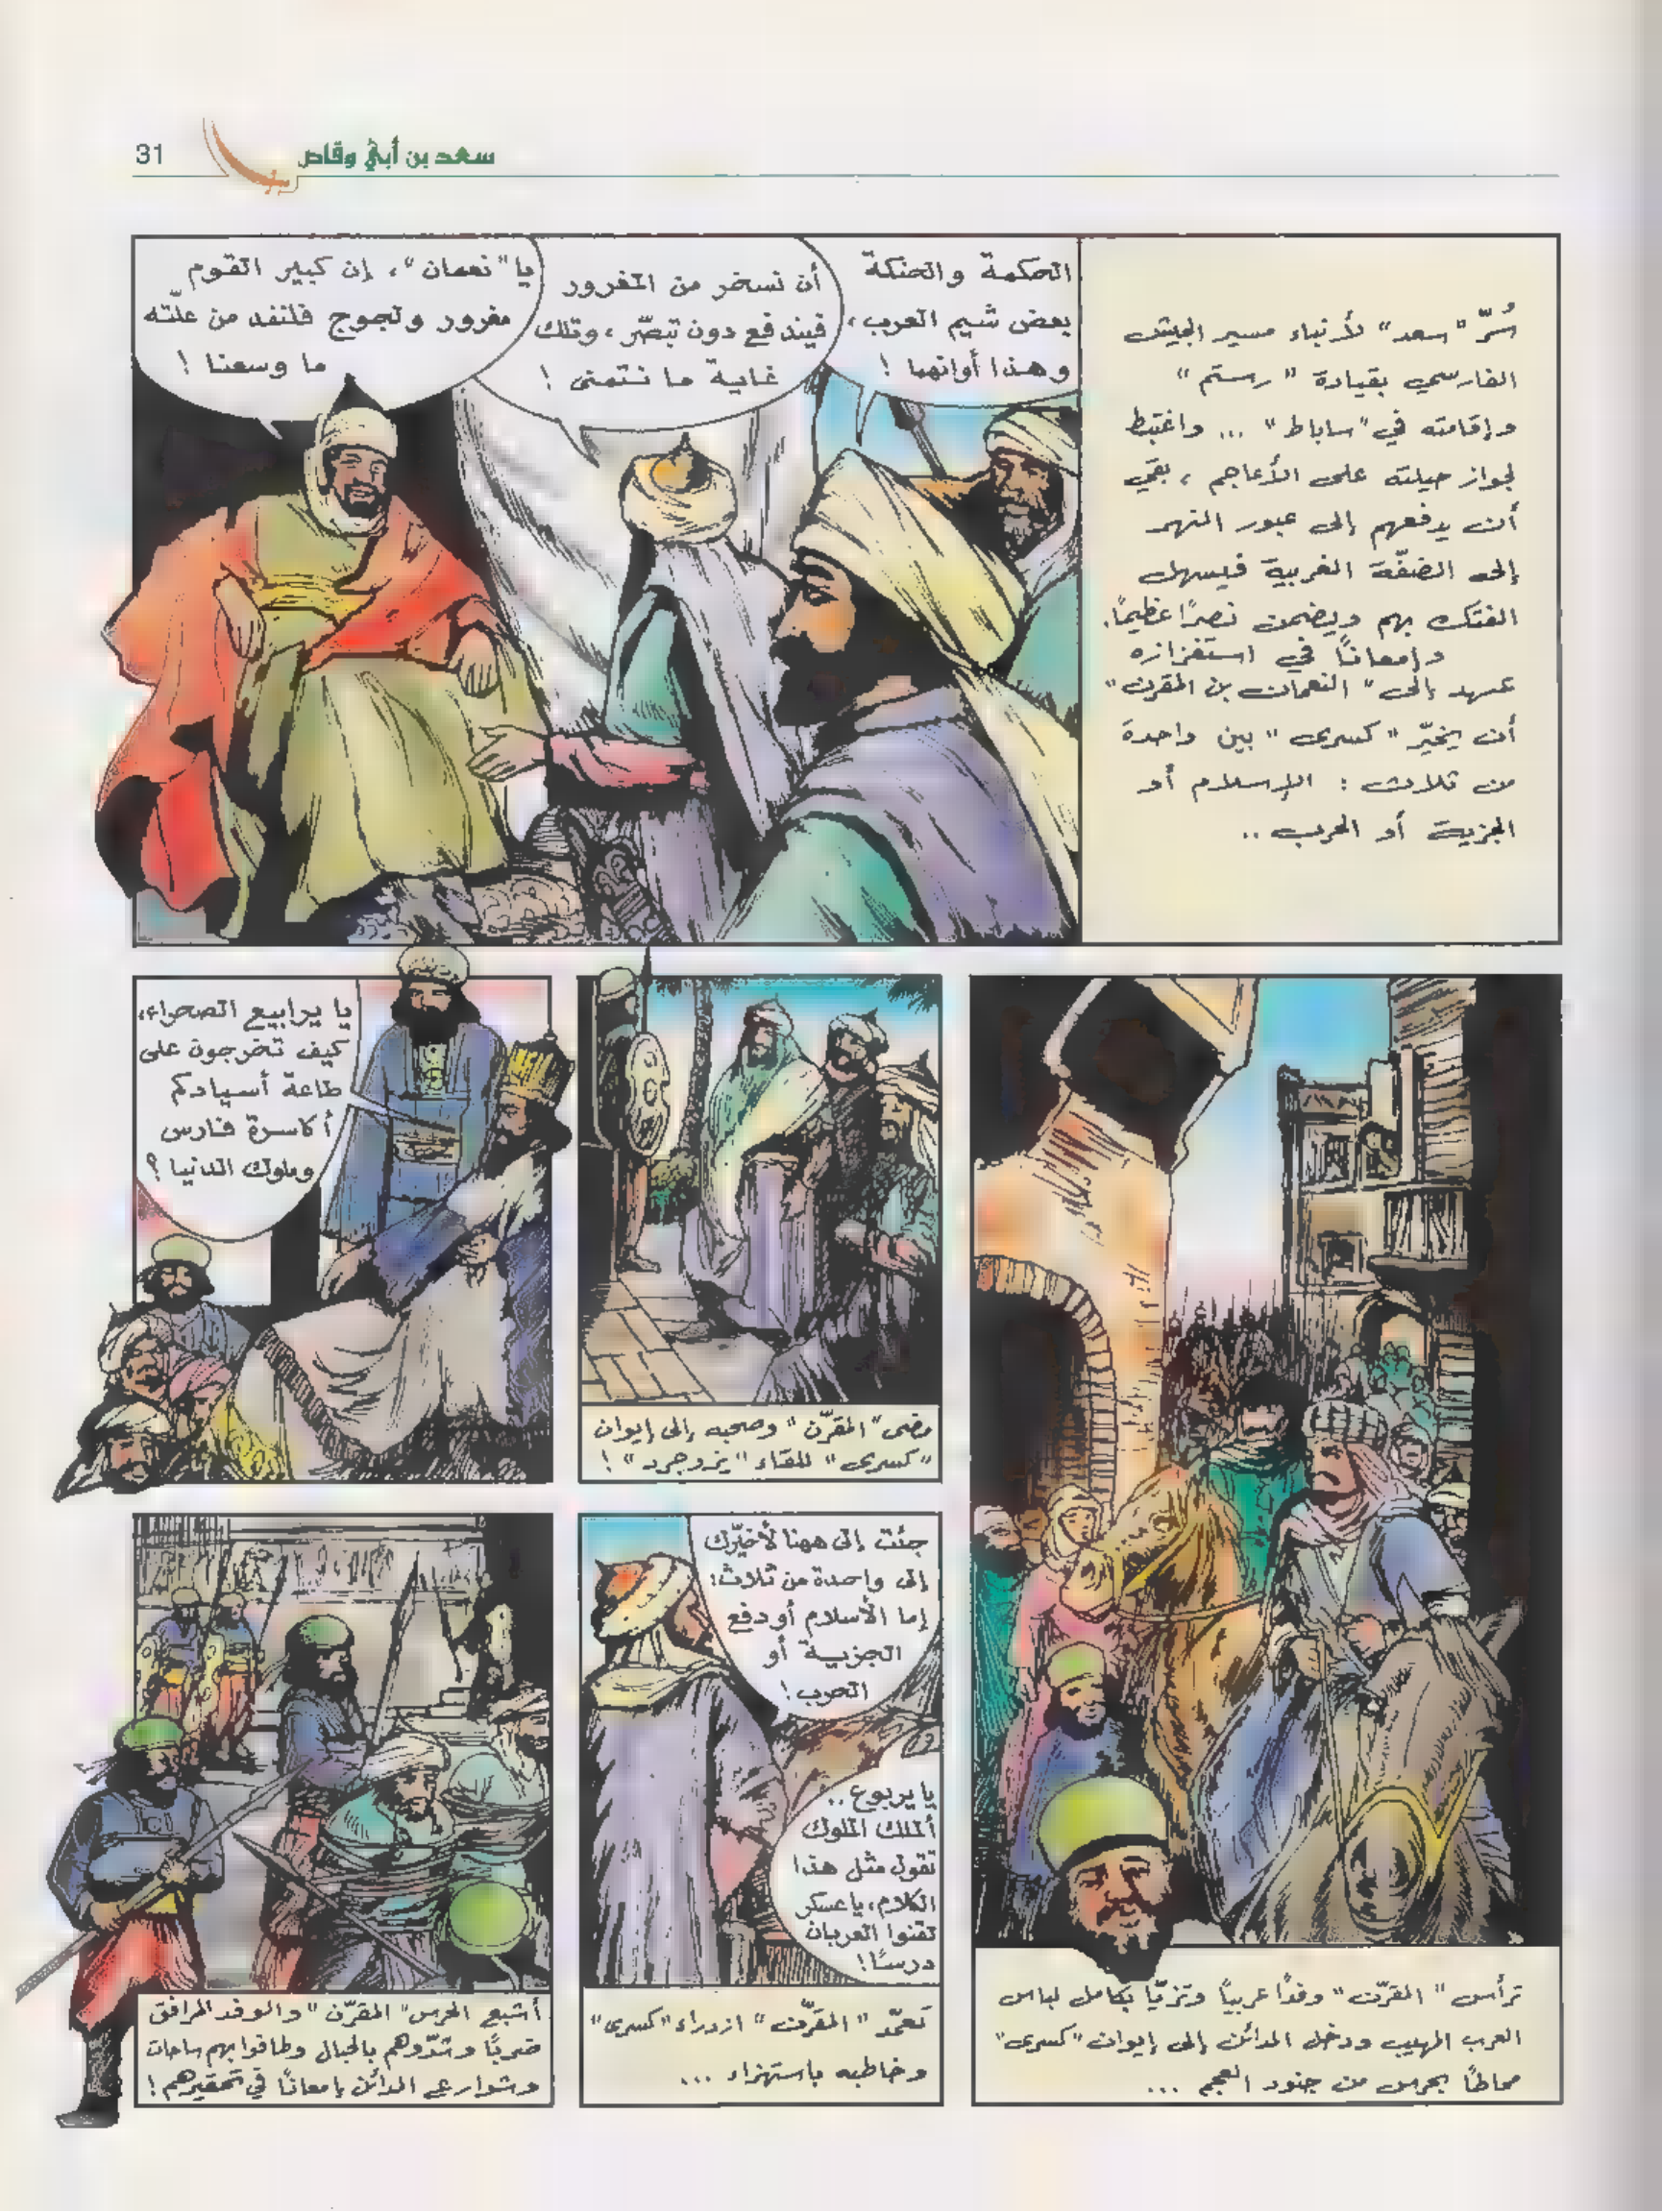 31
سعد بن أبي وقاص
سُرّ "سعد" لأنباء مسير الجيش
الفارسي بقيادة "رستم"
وإقامته في "ساباط" ... واغتبط
لجواز حيلته على الأعاجم ، بقي
أن يدفعهم إلى عبور النهر
إلى الضفّة الغربية فيسهل
الفتك بهم ويضمن نصرًا عظيمًا.
وإمعانًا في استفزازه
عهد إلى "النعمان بن المقرن"
أن يخيّر "كسرى" بين واحدة
من ثلاث : الإسلام أو
الجزية أو الحرب ..
الحكمة والحنكة
بعض شيم العرب،
وهذا أوانهما !
أن نسخر من المغرور
فيندفع دون تبصّر ، وتلك
غاية ما نتمنى !
يا "نعمان"، إن كبير القوم
مغرور ولجوج فلننفد من علّته
ما وسعنا !
ترأس "المقرّن" وفدًا عربيًا وتزيّا بكامل لباس
العرب المهيب ودخل المدائن إلى إيوان "كسرى"
محاطًا بحرس من جنود العجم ...
مضى "المقرّن" وصحبه إلى إيوان
"كسرى" للقاء "يزدجرد" !
يا يرابيع الصحراء،
كيف تخرجون على
طاعة أسيادكم
أكاسرة فارس
وملوك الدنيا ؟
جئت إلى ههنا لأخيّرك
إلى واحدة من ثلاث:
إما الأسلام أو دفع
الجزية أو
الحرب !
يا يربوع ..
ألملك الملوك
تقول مثل هذا
الكلام، يا عسكر
لقنوا العربان
درسًا !
تعمّد "المقرّن" ازدراء "كسرى"
وخاطبه باستهزاء ...
أشبع الحرس "المقرّن" والوفد المرافق
ضربًا وشدّوهم بالحبال وطافوا بهم ساحات
وشوارع المدائن إمعانًا في تحقيرهم !